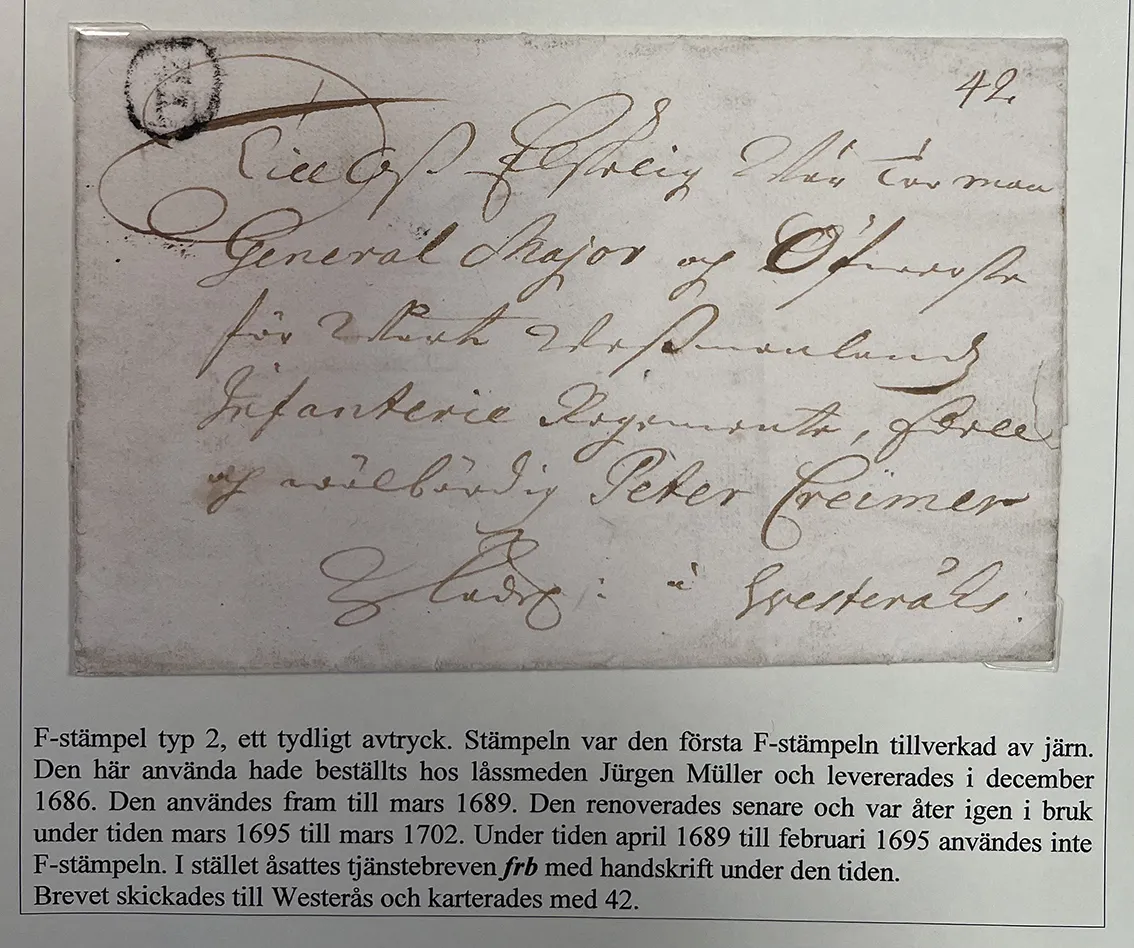 42.
Till Oß Elskelig Wår Troo man
General Major og Öfwerste
för Wart Westmanland
Infanterie Regemente,
og wälbördig Peter Creimer
à Westeråhs.
F-stämpel typ 2, ett tydligt avtryck. Stämpeln var den första F-stämpeln tillverkad av järn.
Den här använda hade beställts hos låssmeden Jürgen Müller och levererades i december
1686. Den användes fram till mars 1689. Den renoverades senare och var åter igen i bruk
under tiden mars 1695 till mars 1702. Under tiden april 1689 till februari 1695 användes inte
F-stämpeln. I stället åsattes tjänstebreven frb med handskrift under den tiden.
Brevet skickades till Westerås och karterades med 42.